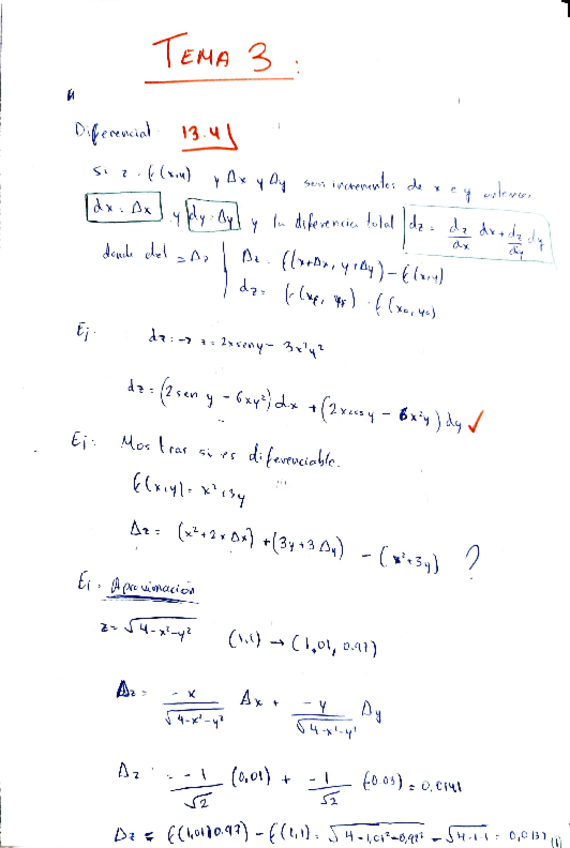 TEMA 3 :
Diferencial 13.4
Si z = f(x,y) y Δx y Δy son incrementos de x e y
dx = Δx y dy = Δy y la diferencia total dz = dz/dx dx + dz/dy dy
donde del = Δz | Δz = f(x+Δx, y+Δy) - f(x,y)
dz = f(xF, yF) - f(x0, y0)
Ej: dz = → z = 2x sen y - 3x²y²
dz = (2 sen y - 6xy²) dx + (2x cos y - 6x²y) dy ✓
Ej: Mostrar si es diferenciable.
f(x,y) = x² + 3y
Δz = (x² + 2xΔx) + (3y + 3Δy) - (x² + 3y) ?
Ej. Aproximación
z = √4-x²-y² (1,1) → (1,01, 0.97)
Δz = -x/√4-x²-y² Δx + -y/√4-x²-y² Δy
Δz = -1/√2 (0,01) + -1/√2 (-0.03) = 0.0141
Δz = f(1,01, 0.97) - f(1,1) = √4-1,01²-0,97² - √4-1-1 = 0,0137